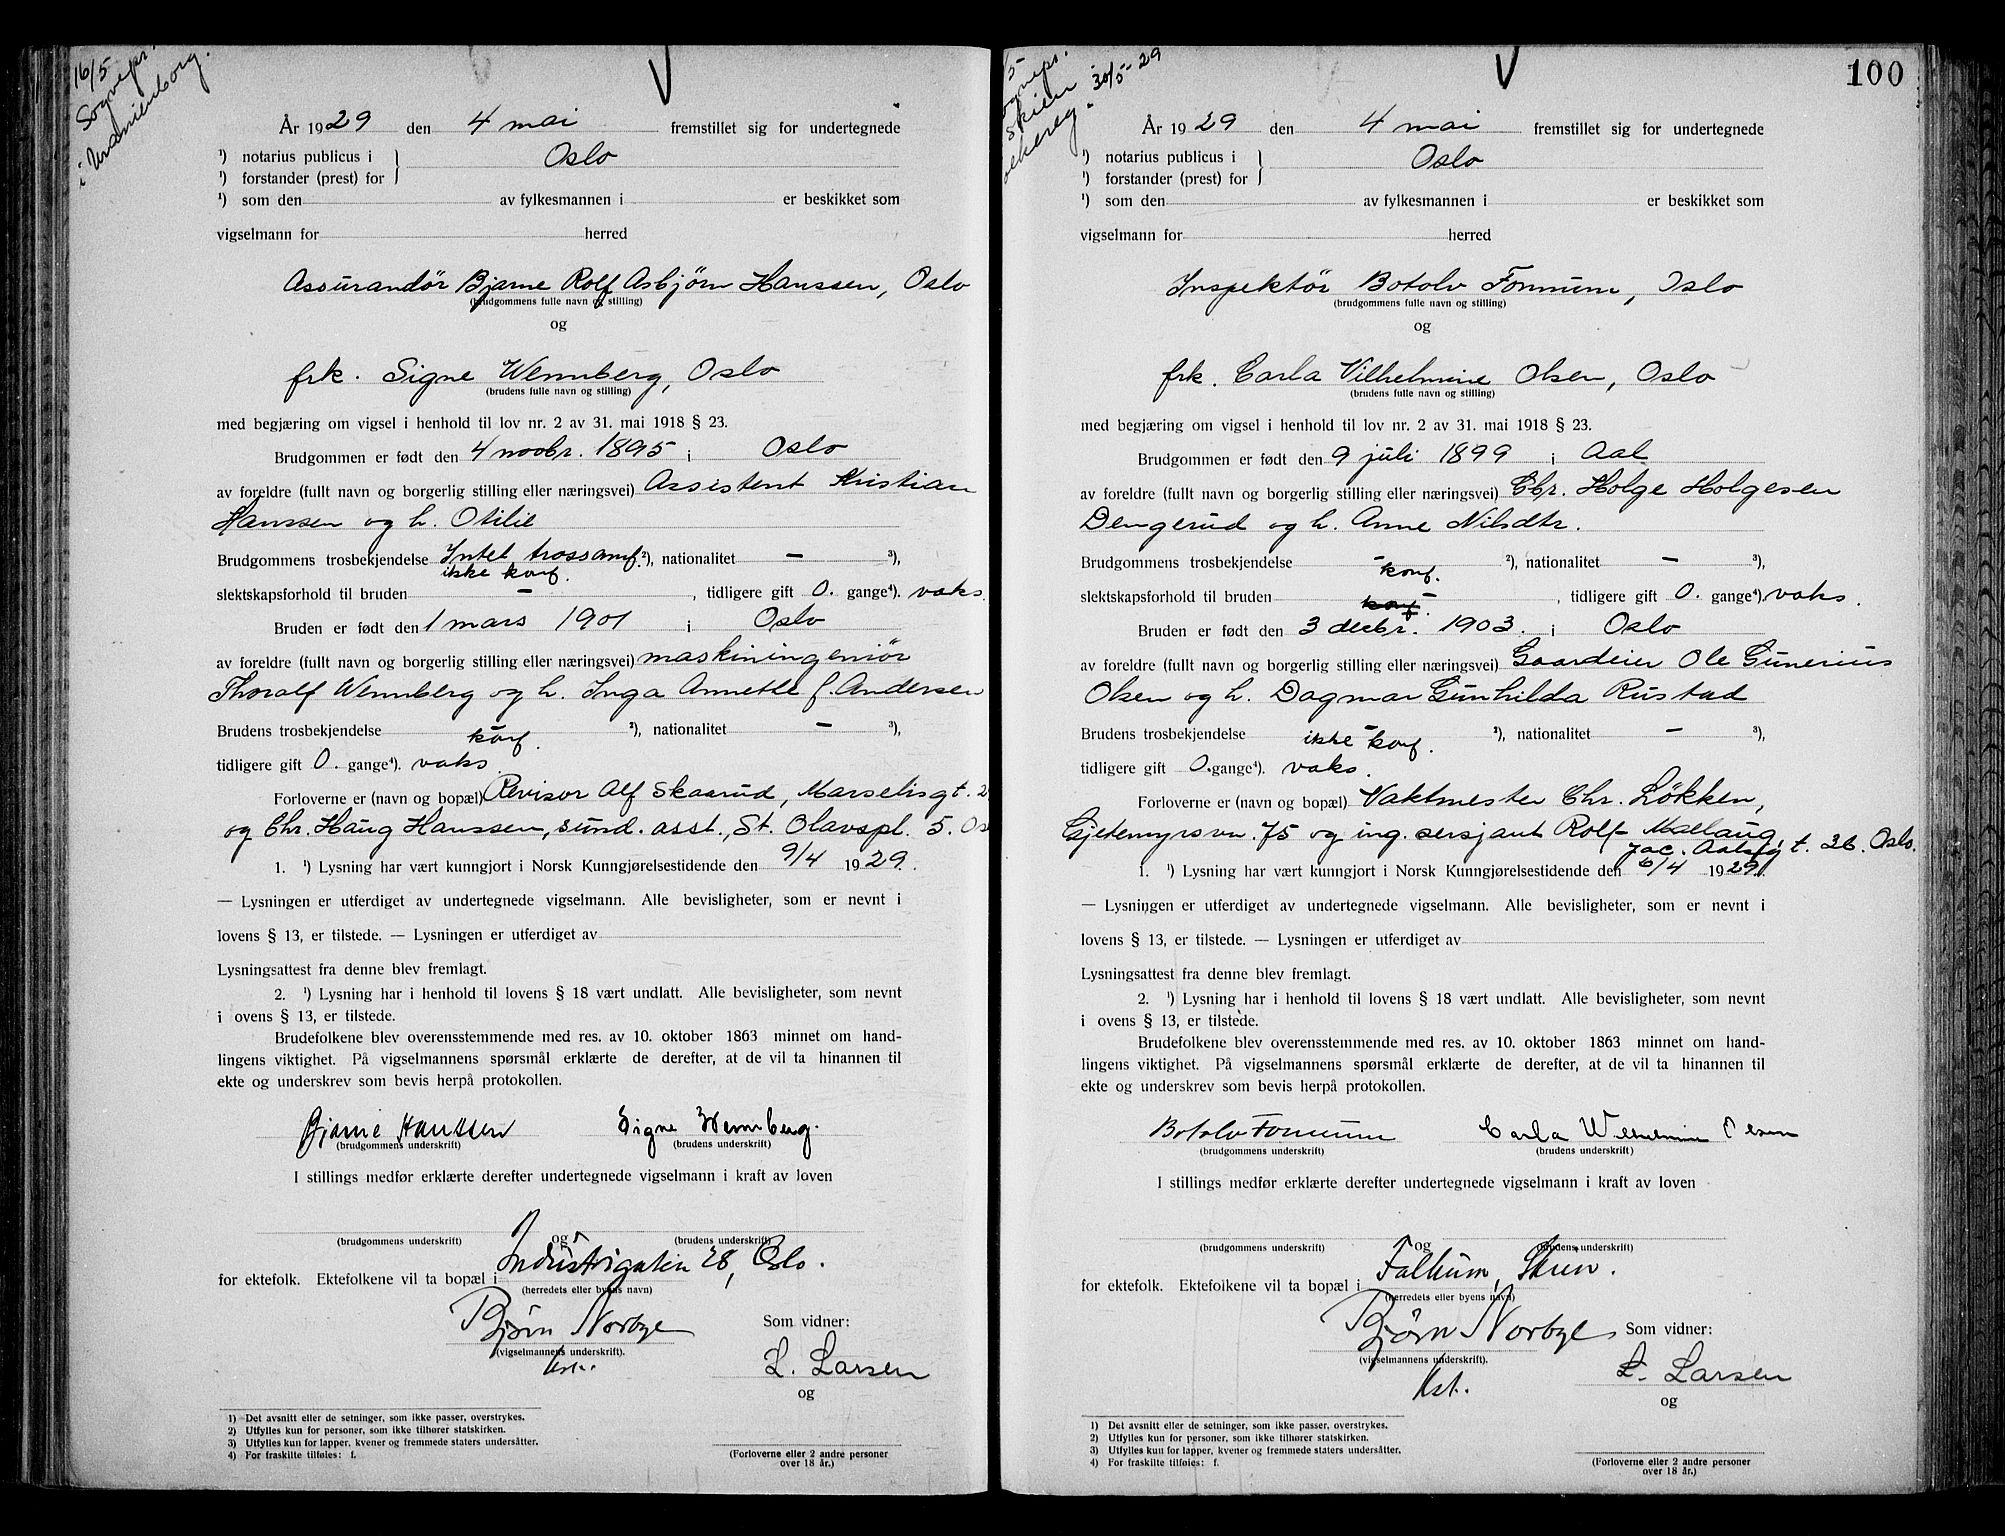 16/5
Sogneprs.
i Uranienborg.
År 1929 den 4 mai fremstillet sig for undertegnede
¹) notarius publicus i } Oslo
¹) forstander (prest) for
¹) som den av fylkesmannen i er beskikket som
vigselmann for herred
Assurandør Bjarne Rolf Asbjørn Hanssen, Oslo
(brudgommens fulle navn og stilling)
og
frk. Signe Wennberg, Oslo
(brudens fulle navn og stilling)
med begjæring om vigsel i henhold til lov nr. 2 av 31. mai 1918 § 23.
Brudgommen er født den 4 novbr. 1895 i Oslo
av foreldre (fullt navn og borgerlig stilling eller næringsvei) Assistent Kristian
Hanssen og h. Otilie
Brudgommens trosbekjendelse Intet trossamf. ²), nationalitet — ³),
ikke konf.
slektskapsforhold til bruden — , tidligere gift 0. gange⁴). vaks.
Bruden er født den 1 mars 1901 i Oslo
av foreldre (fullt navn og borgerlig stilling eller næringsvei) maskiningeniør
Thoralf Wennberg og h. Inga Annette f. Andersen
Brudens trosbekjendelse — ²), nationalitet — ³),
konf.
tidligere gift 0. gange⁴). vaks.
Forloverne er (navn og bopæl) Revisor Alf Skaarud, Marselisgt. 2
og Chr. Haug Hanssen, sund. asst., St. Olavspl. 5. Os
1. ¹) Lysning har vært kunngjort i Norsk Kunngjørelsestidende den 9/4 1929.
— Lysningen er utferdiget av undertegnede vigselmann. Alle bevisligheter, som er nevnt i
lovens § 13, er tilstede. — Lysningen er utferdiget av
Lysningsattest fra denne blev fremlagt.
2. ¹) Lysning har i henhold til lovens § 18 vært undlatt. Alle bevisligheter, som nevnt
i ovens § 13, er tilstede.
Brudefolkene blev overensstemmende med res. av 10. oktober 1863 minnet om hand-
lingens viktighet. På vigselmannens spørsmål erklærte de derefter, at de vil ta hinannen til
ekte og underskrev som bevis herpå protokollen.
Bjarne Hanssen Signe Wennberg.
(brudgommens underskrift) (brudens underskrift)
I stillings medfør erklærte derefter undertegnede vigselmann i kraft av loven
og
(brudgommens underskrift) (brudens underskrift)
for ektefolk. Ektefolkene vil ta bopæl i Industrigaten 28, Oslo.
(herredets eller byens navn)
Bjørn Norbye Som vidner:
(vigselmannens underskrift).
kst. L. Larsen
og
1) Det avsnitt eller de setninger, som ikke passer, overstrykes.
2) Utfylles kun for personer, som ikke tilhører statskirken.
3) Utfylles kun for lapper, kvener og fremmede staters undersåtter.
4) For fraskilte tilføies: f.
(Forloverne eller 2 andre personer
over 18 år.)
100
Skien
30/5-29
År 1929 den 4 mai fremstillet sig for undertegnede
¹) notarius publicus i } Oslo
¹) forstander (prest) for
¹) som den av fylkesmannen i er beskikket som
vigselmann for herred
Inspektør Botolv Fonnum, Oslo
(brudgommens fulle navn og stilling)
og
frk. Carla Vilhelmine Olsen, Oslo
(brudens fulle navn og stilling)
med begjæring om vigsel i henhold til lov nr. 2 av 31. mai 1918 § 23.
Brudgommen er født den 9 juli 1899 i Aal
av foreldre (fullt navn og borgerlig stilling eller næringsvei) Gbr. Holge Holgesen
Dengerud og h. Anne Nilsdtr.
Brudgommens trosbekjendelse — ²), nationalitet — ³),
konf.
slektskapsforhold til bruden — , tidligere gift 0. gange⁴). vaks.
konf.
Bruden er født den 3 decbr. 1903. i Oslo
av foreldre (fullt navn og borgerlig stilling eller næringsvei) Gaardeier Ole Gunerius
Olsen og h. Dagmar Gunhilda Rustad
Brudens trosbekjendelse — ²), nationalitet — ³),
ikke konf.
tidligere gift 0. gange⁴). vaks.
Forloverne er (navn og bopæl) Vaktmester Chr. Løkken,
Gjetemyrsvn. 75 og ing. sersjant Rolf Mællaug
Jac. Aalsgt. 26. Oslo.
1. ¹) Lysning har vært kunngjort i Norsk Kunngjørelsestidende den 6/4 1929.
— Lysningen er utferdiget av undertegnede vigselmann. Alle bevisligheter, som er nevnt i
lovens § 13, er tilstede. — Lysningen er utferdiget av
Lysningsattest fra denne blev fremlagt.
2. ¹) Lysning har i henhold til lovens § 18 vært undlatt. Alle bevisligheter, som nevnt
i ovens § 13, er tilstede.
Brudefolkene blev overensstemmende med res. av 10. oktober 1863 minnet om hand-
lingens viktighet. På vigselmannens spørsmål erklærte de derefter, at de vil ta hinannen til
ekte og underskrev som bevis herpå protokollen.
Botolv Fonnum Carla Wilhelmine Olsen
(brudgommens underskrift) (brudens underskrift)
I stillings medfør erklærte derefter undertegnede vigselmann i kraft av loven
og
(brudgommens underskrift) (brudens underskrift)
for ektefolk. Ektefolkene vil ta bopæl i Falkum, Skien.
(herredets eller byens navn)
Bjørn Norbye Som vidner:
(vigselmannens underskrift).
kst. L. Larsen
og
1) Det avsnitt eller de setninger, som ikke passer, overstrykes.
2) Utfylles kun for personer, som ikke tilhører statskirken.
3) Utfylles kun for lapper, kvener og fremmede staters undersåtter.
4) For fraskilte tilføies: f.
(Forloverne eller 2 andre personer
over 18 år.)